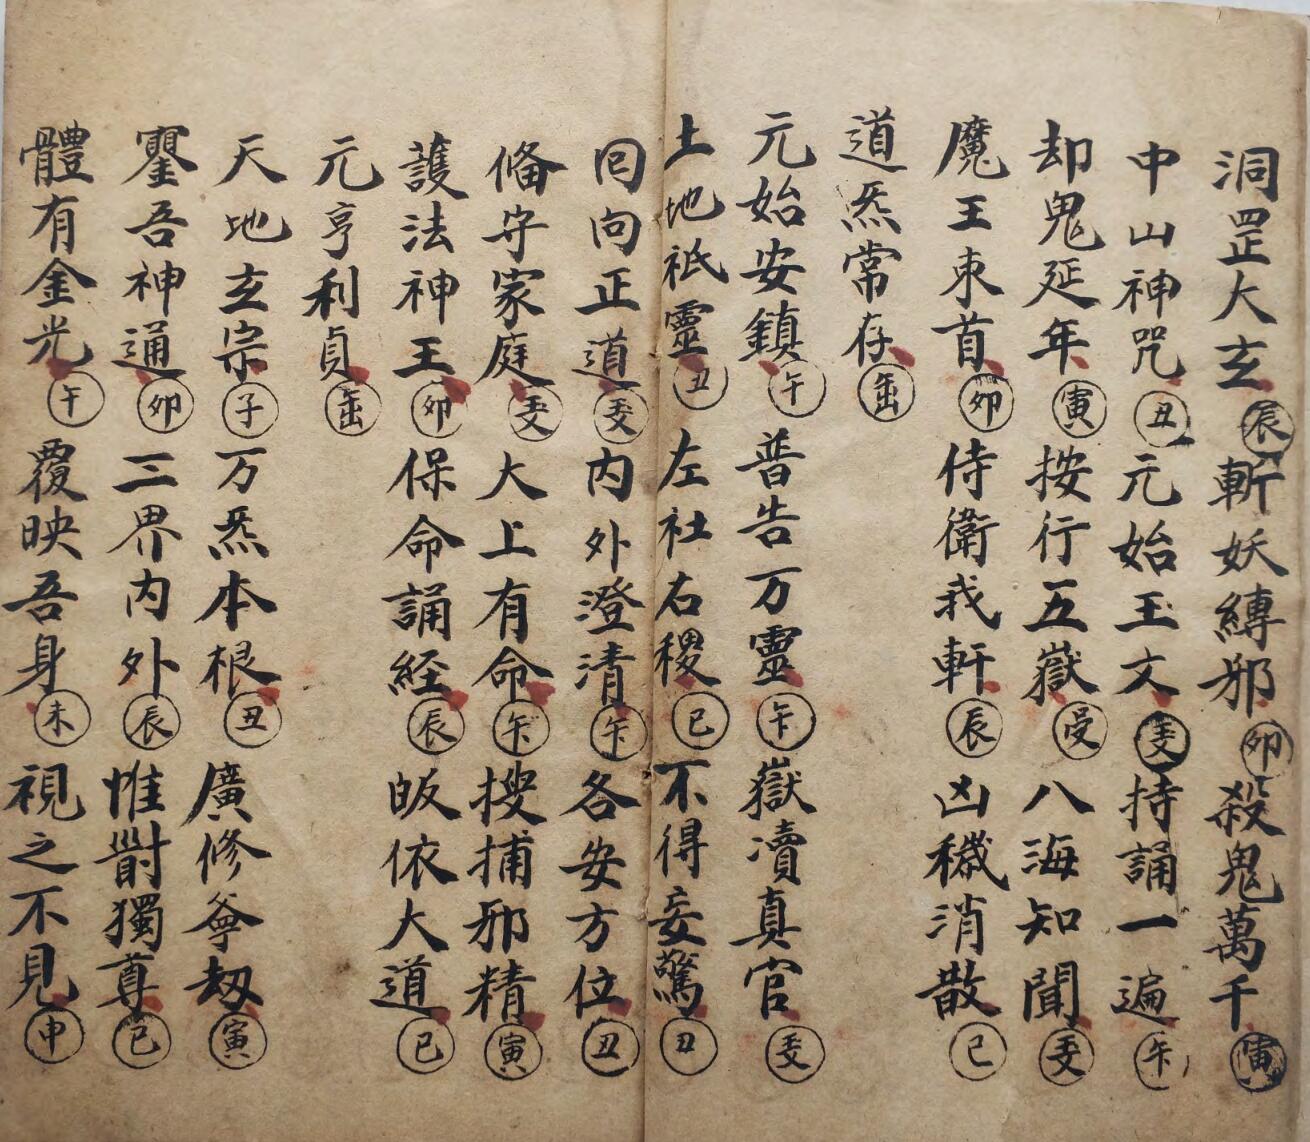 洞罡大玄㊎辰斬妖縛邪卯殺鬼萬千寅
中山神咒丑元始玉文持誦一遍午
却鬼延年寅按行五嶽八海知聞
魔王束首卯侍衛我軒辰凶穢消散已
道炁常存
元始安鎮午普告万靈午嶽瀆真官
土地祇靈丑左社右稷已不得妄驚丑
回向正道内外澄清午各安方位丑
俻守家庭大上有命午搜捕邪精寅
護法神王卯保命誦経辰皈依大道已
元亨利貞
天地玄宗子万炁本根丑廣修劫寅
吾神通卯三界内外辰惟獨尊已
體有金光午覆映吾身未視之不見申